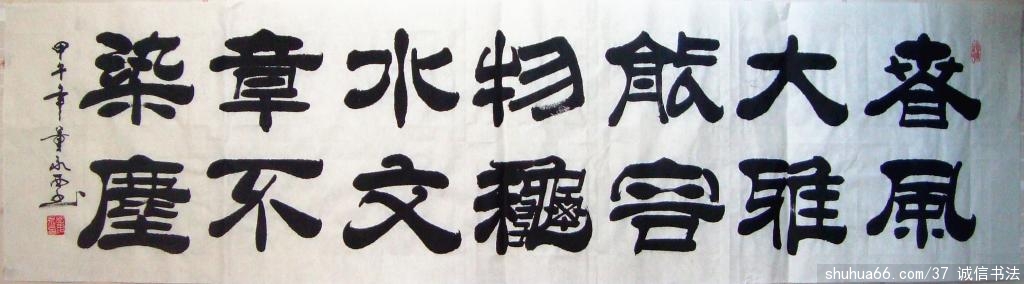 春風
大雅
能容
物龝
水文
章不
染塵
甲午年董永
shuhua66.com/37 诚信书法